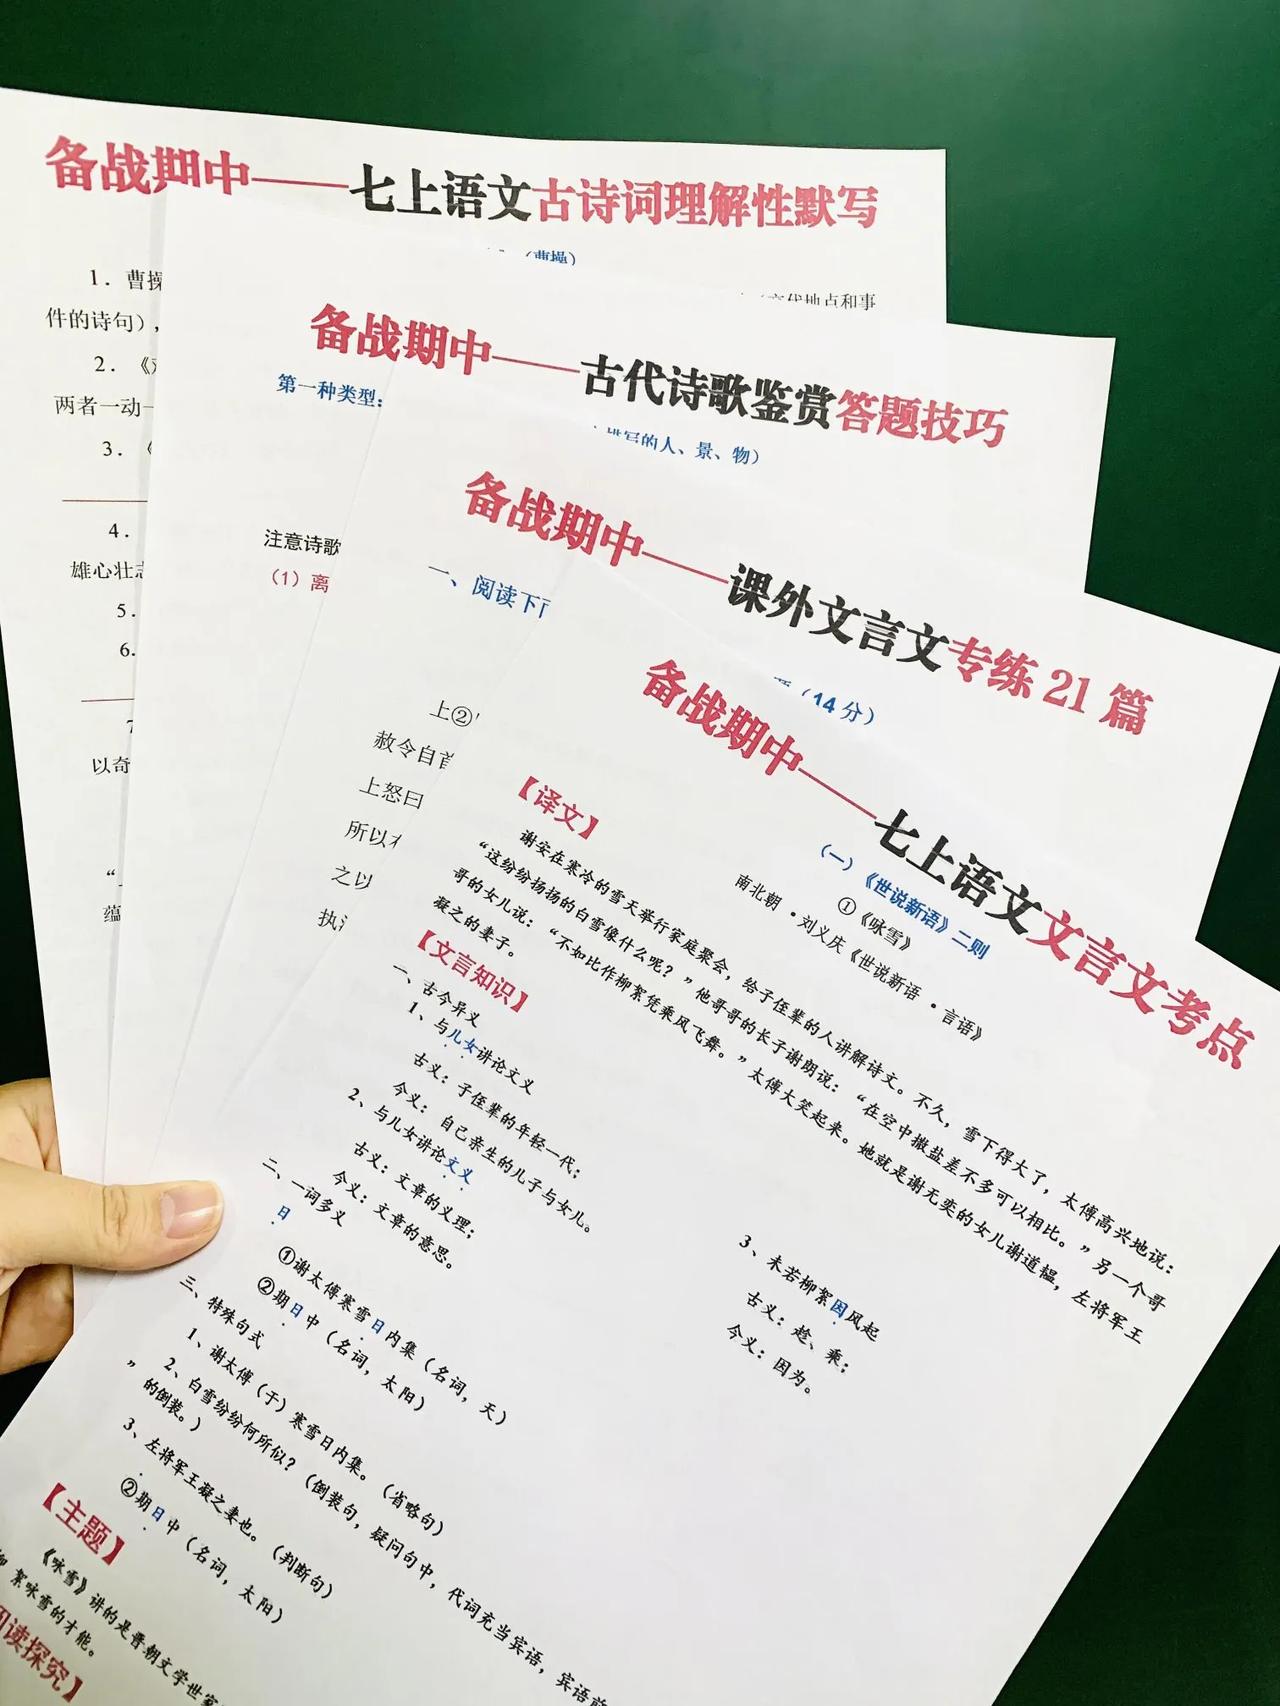 备战期中——七上语文古诗词理解性默写
（曹操）
1．曹操
件的诗句），
2．《
两者一动一
3．《
4．
雄心壮志
5．
6．
7
以奇
蕴
备战期中——古代诗歌鉴赏答题技巧
第一种类型：
写的人、景、物）
注意诗歌
（1）离
备战期中——课外文言文专练21篇
一、阅读下
（14分）
上②
赦令自首
上怒曰
所以
之以
执
备战期中——七上语文文言文考点
（一）《世说新语》二则
①《咏雪》
南北朝·刘义庆《世说新语·言语》
【译文】
谢安在寒冷的雪天举行家庭聚会，给子侄辈的人讲解诗文。不久，雪下得大了，太傅高兴地说：
“这纷纷扬扬的白雪像什么呢？”他哥哥的长子谢朗说：“在空中撒盐差不多可以相比。”另一个哥
哥的女儿说：“不如比作柳絮凭乘风飞舞。”太傅大笑起来。她就是谢无奕的女儿谢道韫，左将军王
凝之的妻子。
【文言知识】
一、古今异义
1、与儿女讲论文义
古义：子侄辈的年轻一代；
今义：自己亲生的儿子与女儿。
2、与儿女讲论文义
古义：文章的义理；
今义：文章的意思。
3、未若柳絮因风起
古义：趁、乘；
今义：因为。
二、一词多义
日
①谢太傅寒雪日内集（名词，天）
②期日中（名词，太阳）
三、特殊句式
1、谢太傅（于）寒雪日内集。（省略句）
2、白雪纷纷何所似？（倒装句，疑问句中，代词充当宾语，宾语前
”的倒装。）
3、左将军王凝之妻也。（判断句）
②期日中（名词，太阳）
【主题】
《咏雪》讲的是晋朝文学世家
絮咏雪的才能。
读探究】